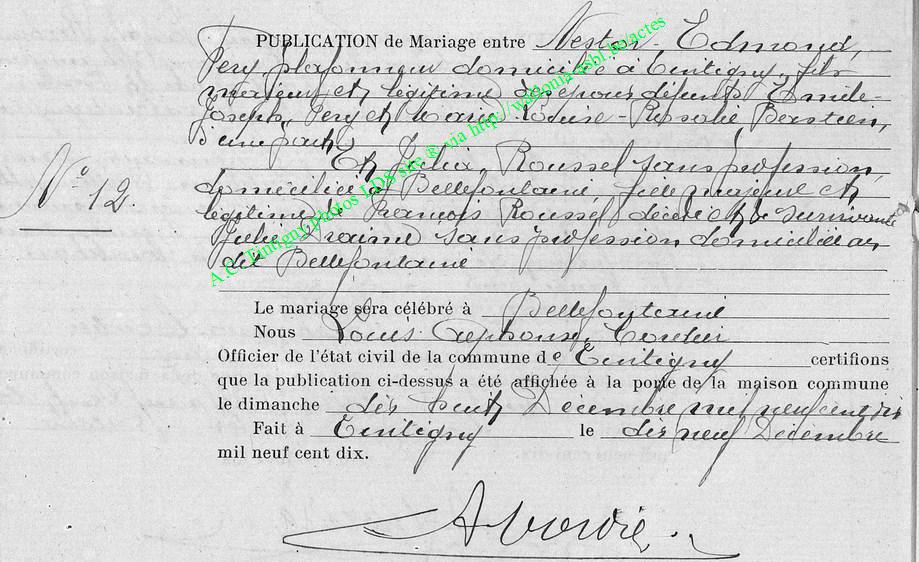 PUBLICATION de Mariage entre Nestor, Edmond,
Pery plafonneur domicilié à Tintigny, fils
majeur et légitime des époux défunts Emile-
Joseph, Pery et Marie Louise-Rosalie Bastien,
d'une part,
Et Julia Roussel sans profession,
N° 12.
domiciliée à Bellefontaine, fille majeure et
légitime de François Roussel décédé et de survivante
Julie Draime sans profession domiciliée au
dit Bellefontaine
Le mariage sera célébré à Bellefontaine
Nous Louis Alphonse, Cordier
Officier de l'état civil de la commune de Tintigny certifions
que la publication ci-dessus a été affichée à la porte de la maison commune
le dimanche dix huit Décembre mil neuf cent dix
Fait à Tintigny le dix neuf Décembre
mil neuf cent dix.
A.C. Tintigny photos LDS site ® via http://wallonia-asbl.be/actes